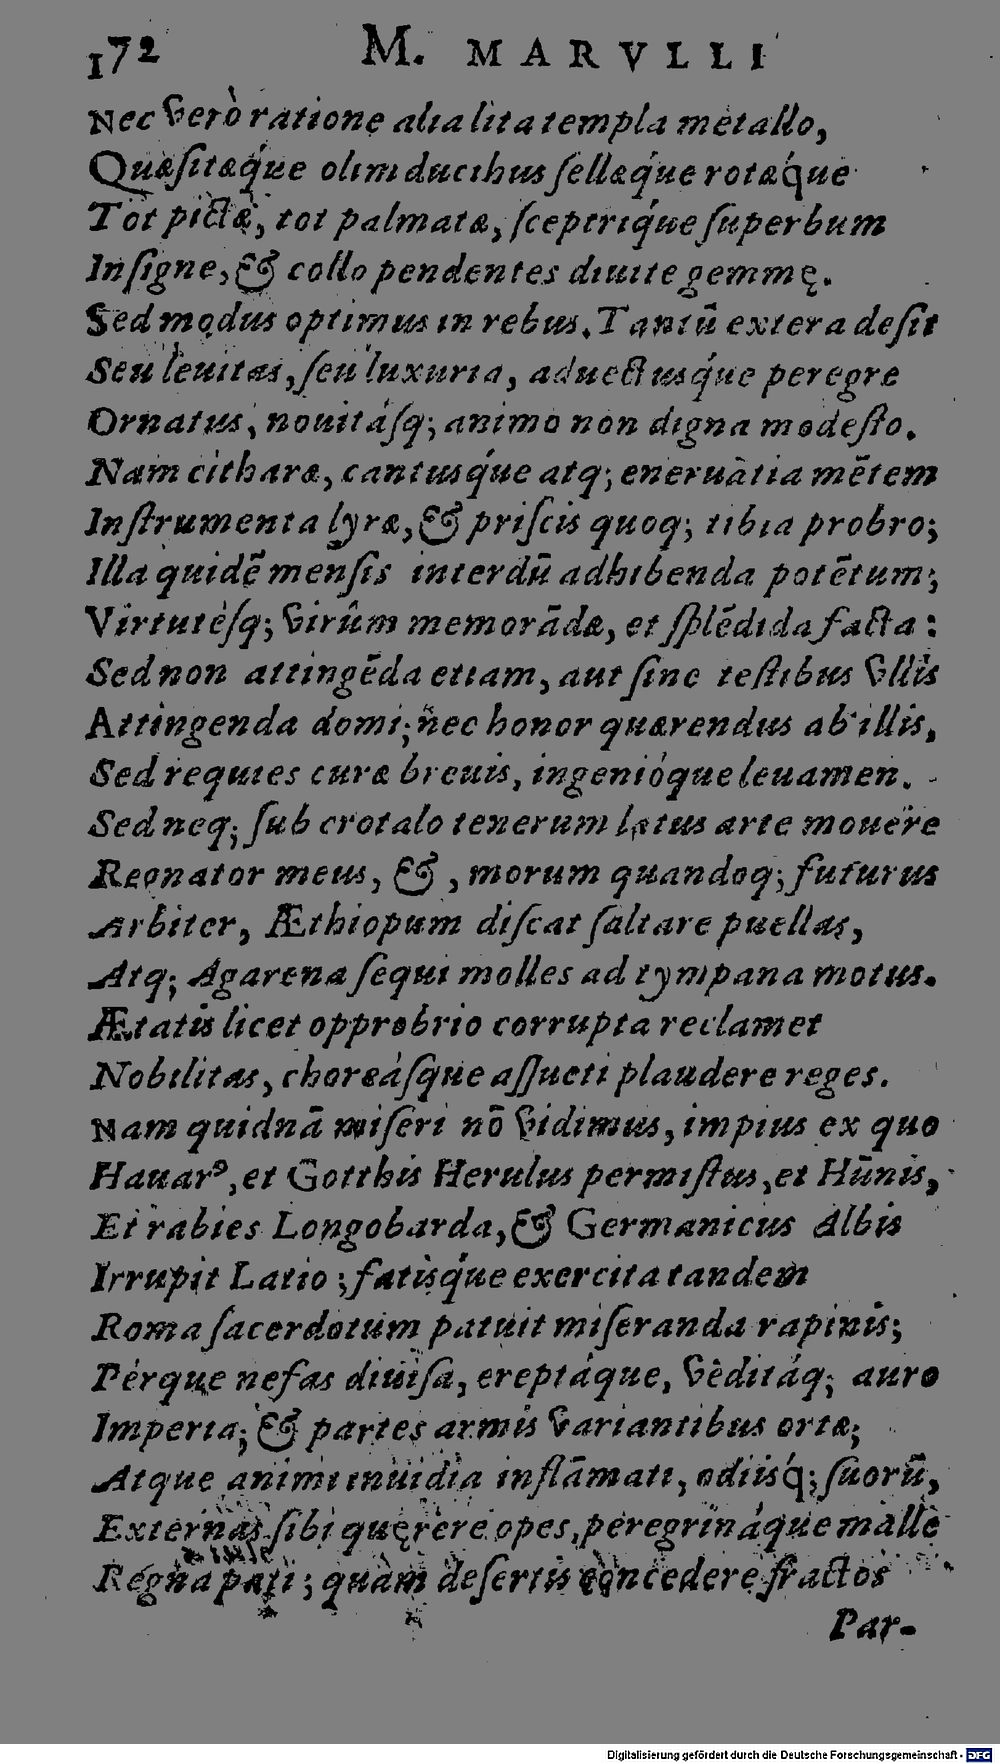 172 M. MARVLLI
Nec verò ratione alia lita templa metallo,
Quæsitæq́ue olim ducibus sellæq́ue rotæq́ue
Tot pictæ, tot palmatæ, sceptriq́ue superbum
Insigne, & collo pendentes diuite gemmę.
Sed modus optimus in rebus. Tantū extera desit
Seu leuitas, seu luxuria, aduectusq́ue peregre
Ornatus, nouitásq; animo non digna modesto.
Nam citharæ, cantusq́ue atq; eneruātia mētem
Instrumenta lyræ, & priscis quoq; tibia probro;
Illa quidē mensis interdū adhibenda potētum;
Virtutésq; virûm memorādæ, et splēdida facta:
Sed non attingēda etiam, aut sine testibus vllis
Attingenda domi; nec honor quærendus ab illis,
Sed requies curæ breuis, ingenióque leuamen.
Sed neq; sub crotalo tenerum latus arte mouere
Regnator meus, &, morum quandoq; futurus
Arbiter, Æthiopum discat saltare puellas,
Atq; Agarena sequi molles ad tympana motus.
Ætatis licet opprobrio corrupta reclamet
Nobilitas, choreásque assueti plaudere reges.
Nam quidnā miseri nō vidimus, impius ex quo
Hauarꝰ, et Gotthis Herulus permistus, et Hūnis,
Et rabies Longobarda, & Germanicus Albis
Irrupit Latio; fatisq́ue exercita tandem
Roma sacerdotum patuit miseranda rapinis;
Pérque nefas diuisa, ereptáque, vēditáq; auro
Imperia; & partes armis variantibus ortæ;
Atque animi inuidia inflāmati, odiisq́; suorū,
Externas sibi quęrere opes, peregrináque malle
Regna pati; quàm desertis concedere fractos
Par-
Digitalisierung gefördert durch die Deutsche Forschungsgemeinschaft - DFG